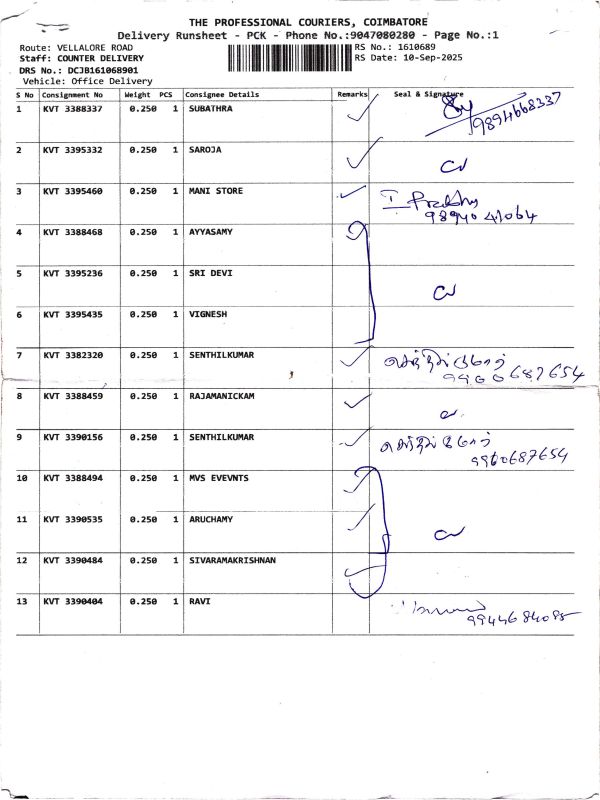 THE PROFESSIONAL COURIERS, COIMBATORE
Delivery Runsheet - PCK - Phone No.:9047080280 - Page No.:1
Route: VELLALORE ROAD
RS No.: 1610689
Staff: COUNTER DELIVERY
RS Date: 10-Sep-2025
DRS No.: DCJB161068901
Vehicle: Office Delivery
S No Consignment No Weight PCS Consignee Details Remarks Seal & Signature
1 KVT 3388337 0.250 1 SUBATHRA 9894668337
2 KVT 3395332 0.250 1 SAROJA
3 KVT 3395460 0.250 1 MANI STORE
9894041064
4 KVT 3388468 0.250 1 AYYASAMY
5 KVT 3395236 0.250 1 SRI DEVI
6 KVT 3395435 0.250 1 VIGNESH
7 KVT 3382320 0.250 1 SENTHILKUMAR செந்தில்குமார்
9960687654
8 KVT 3388459 0.250 1 RAJAMANICKAM
9 KVT 3390156 0.250 1 SENTHILKUMAR செந்தில்குமார்
9960687654
10 KVT 3388494 0.250 1 MVS EVEVNTS
11 KVT 3390535 0.250 1 ARUCHAMY
12 KVT 3390484 0.250 1 SIVARAMAKRISHNAN
13 KVT 3390404 0.250 1 RAVI